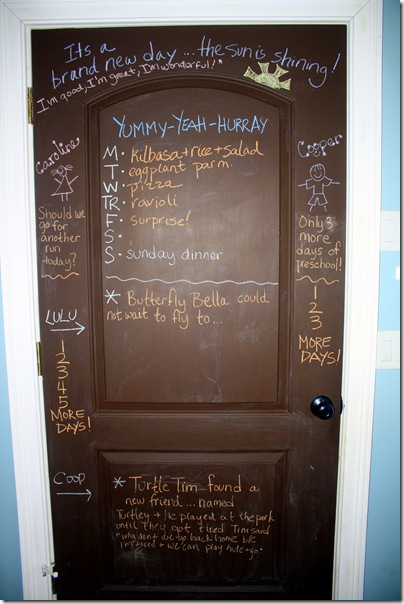 It's a
brand new day... the sun is shining!
"I'm good, I'm great, I'm wonderful!"
YUMMY-YEAH-HURRAY
M. kilbasa + rice + salad
T. eggplant parm.
W. pizza
TR. ravioli
F. surprise!
S.
S. sunday dinner
* Butterfly Bella could
not wait to fly to...
Caroline
Should we
go for
another
run
today?
LULU
1
2
3
4
5
MORE
DAYS!
COOP
Cooper
Only 3
more
days of
preschool!
1
2
3
MORE
DAYS!
* Turtle Tim found a
new friend... named
Turtley + he played at the park
until they got tired Tim said
"why don't we back home b/c
I'm tired + we can play hide + go.